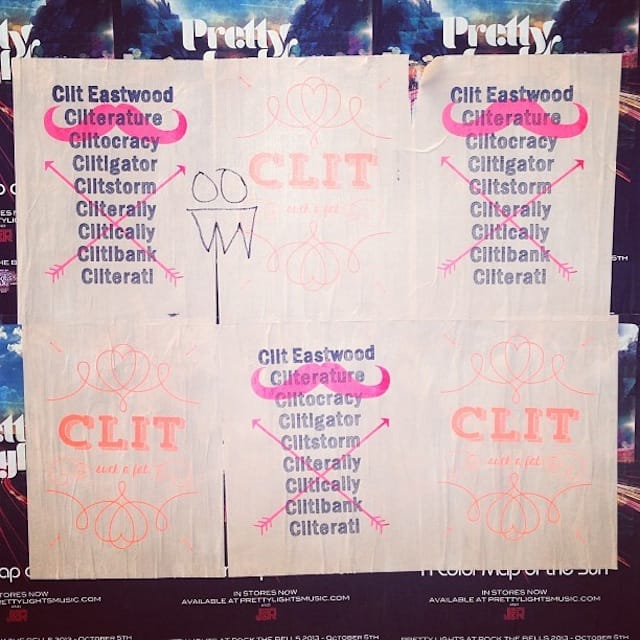 Pretty
Pretty
Clit Eastwood
Cliterature
Clitocracy
Clitigator
Clitstorm
Cliterally
Clitically
Clitibank
Cliterati
CLIT
such a fat
Clit Eastwood
Cliterature
Clitocracy
Clitigator
Clitstorm
Cliterally
Clitically
Clitibank
Cliterati
CLIT
such a fat
Clit Eastwood
Cliterature
Clitocracy
Clitigator
Clitstorm
Cliterally
Clitically
Clitibank
Cliterati
CLIT
such a fat
A Color Map of the Sun
IN STORES NOW
AVAILABLE AT PRETTYLIGHTSMUSIC.COM
IN STORES NOW
AVAILABLE AT PRETTYLIGHTSMUSIC.COM
PRETTY LIGHTS AT ROCK THE BELLS 2013 - OCTOBER 5TH